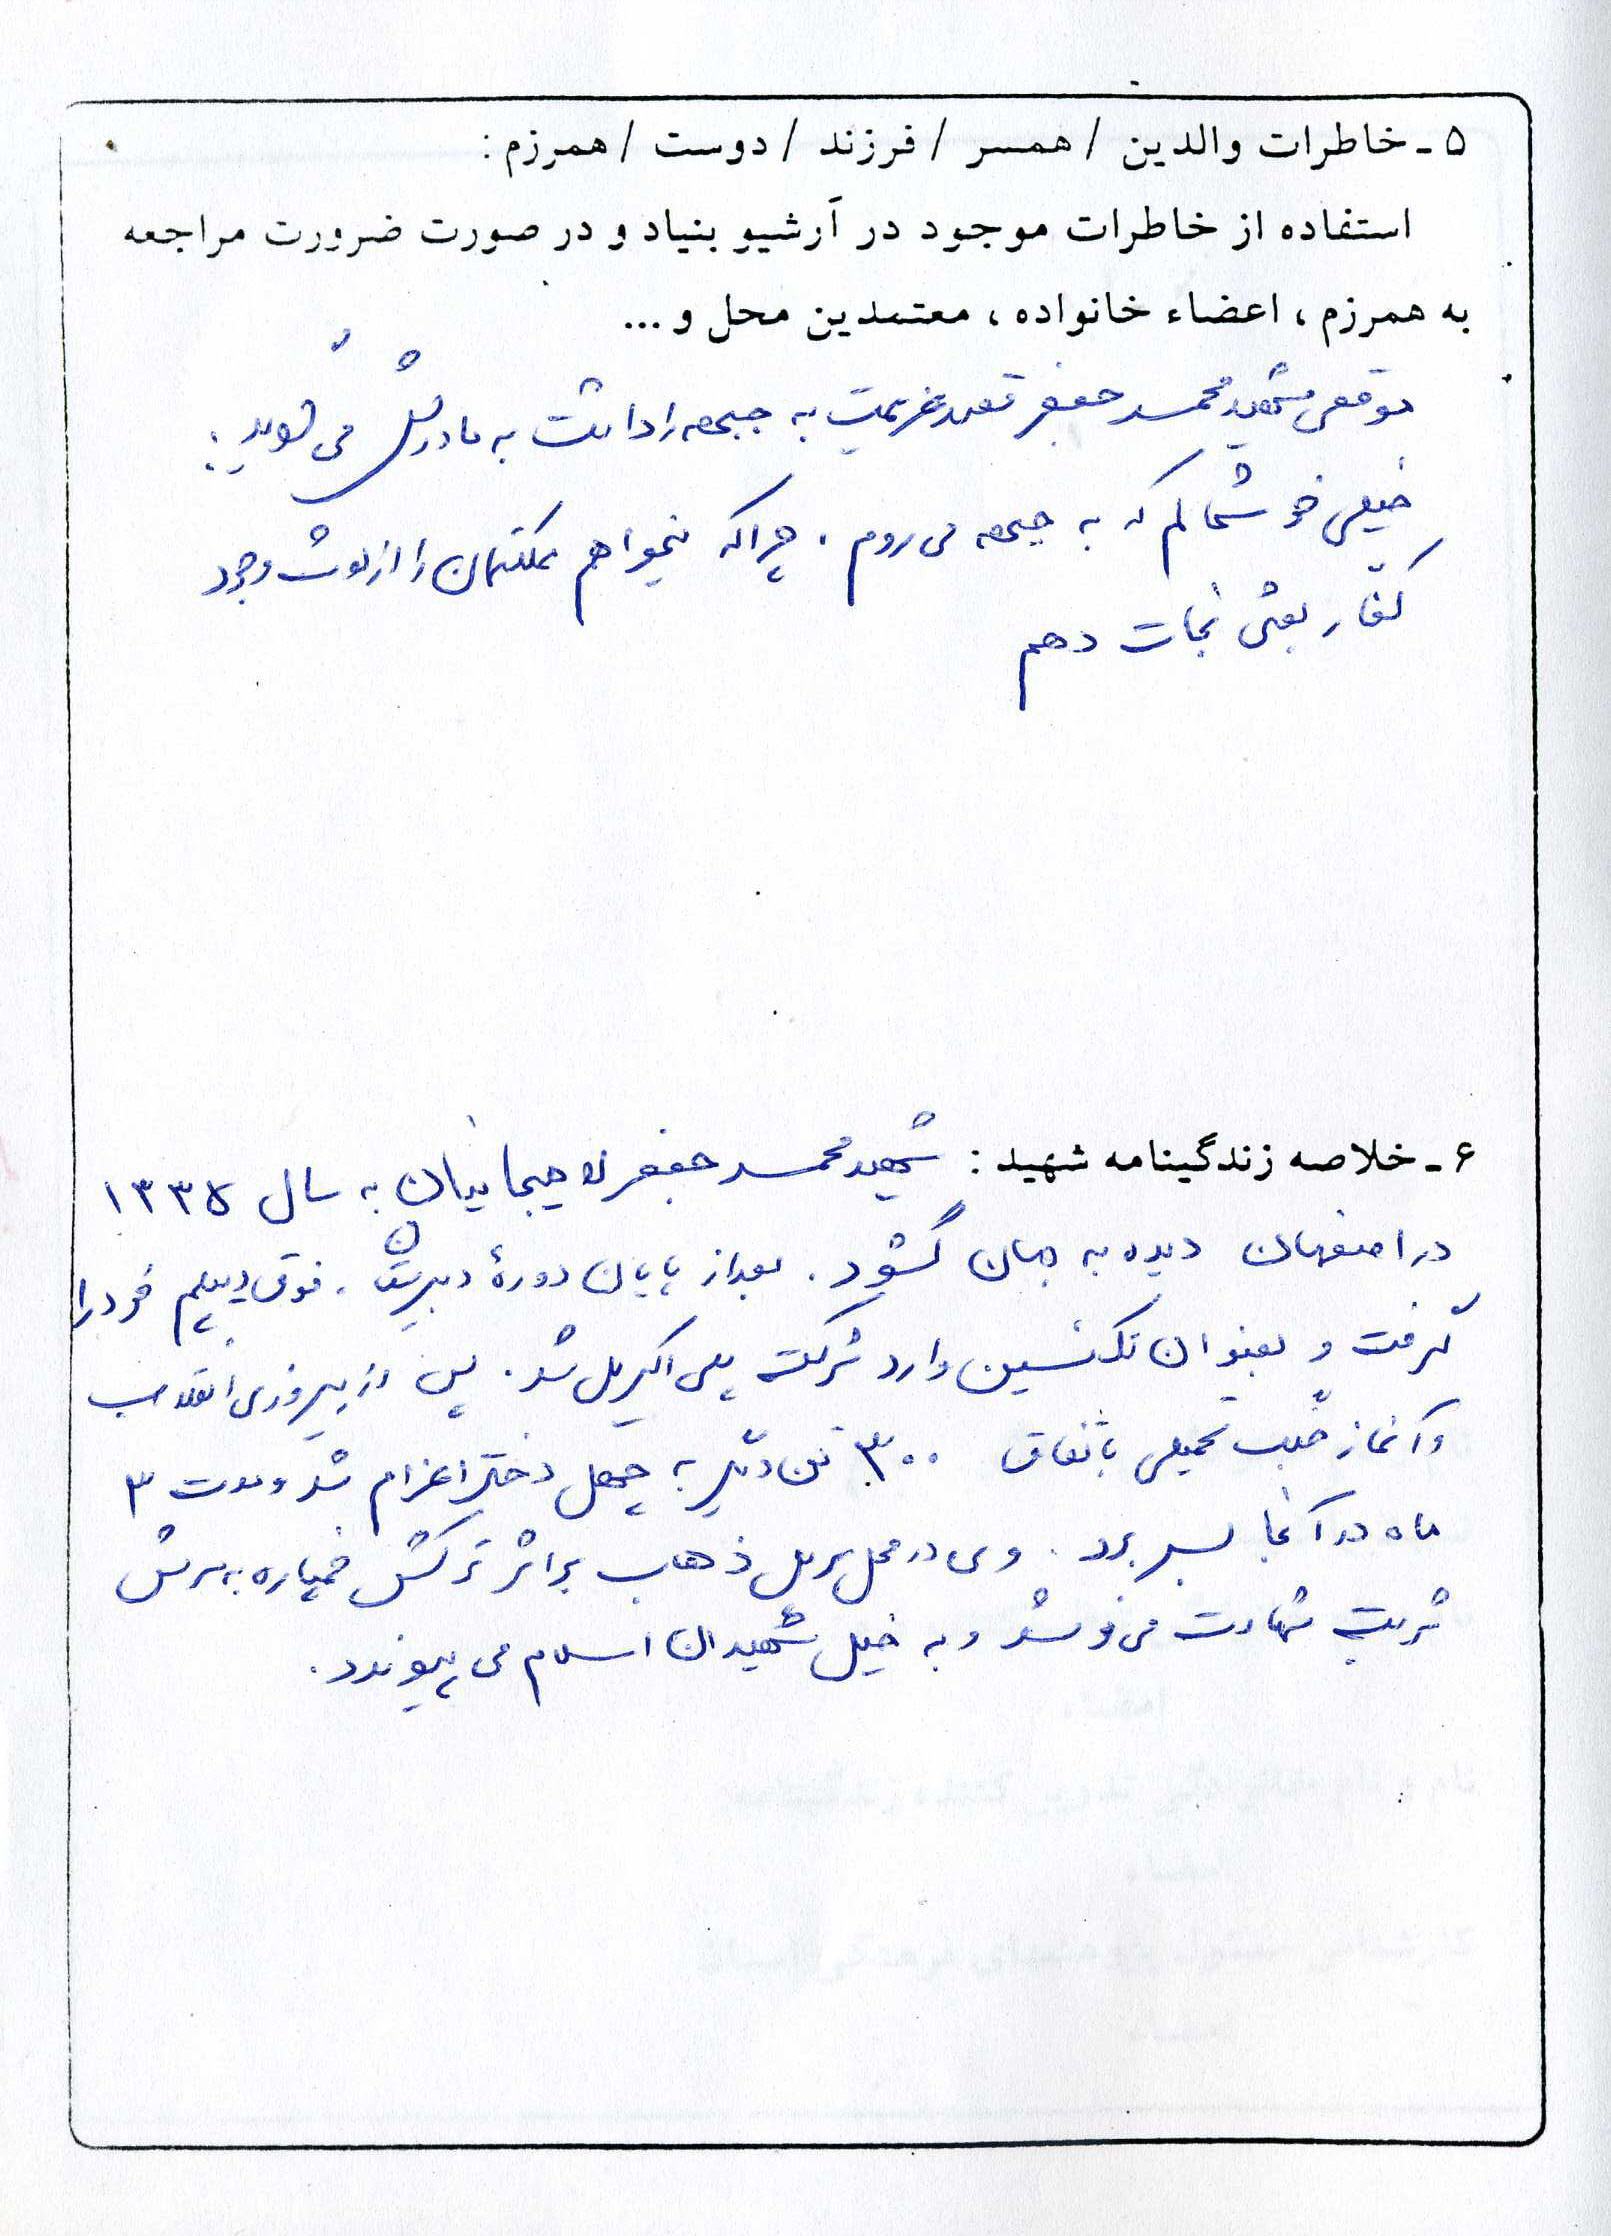 ۵ ـ خاطرات والدین / همسر / فرزند / دوست / همرزم :
استفاده از خاطرات موجود در آرشیو بنیاد و در صورت ضرورت مراجعه
به همرزم ، اعضاء خانواده ، معتمدین محل و ...
موقعی شهید محمد جعفر قصد عزیمت به جبهه را داشت به مادرش می گوید :
خیلی خوشحالم که به جبهه می روم . چرا که میخواهم مملکتمان را از لوث وجود
کفار بعثی نجات دهم
۶ ـ خلاصه زندگینامه شهید : شهید محمد جعفر لاهیجانیان به سال ۱۳۳۵
در اصفهان دیده به جهان گشود . بعد از پایان دورهٔ دبیرستان . فوق دیپلم خود را
گرفت و بعنوان تکنسین وارد شرکت پلی اکریل شد . پس از پیروزی انقلاب
و آغاز جنگ تحمیلی باتفاق ۳۰۰ تن دیگر به چهل دختر اعزام شد و مدت ۳
ماه در آنجا بسر برد . وی در محل سرپل ذهاب بر اثر ترکش خمپاره به سرش
شربت شهادت می نوشد و به خیل شهیدان اسلام می پیوندد .